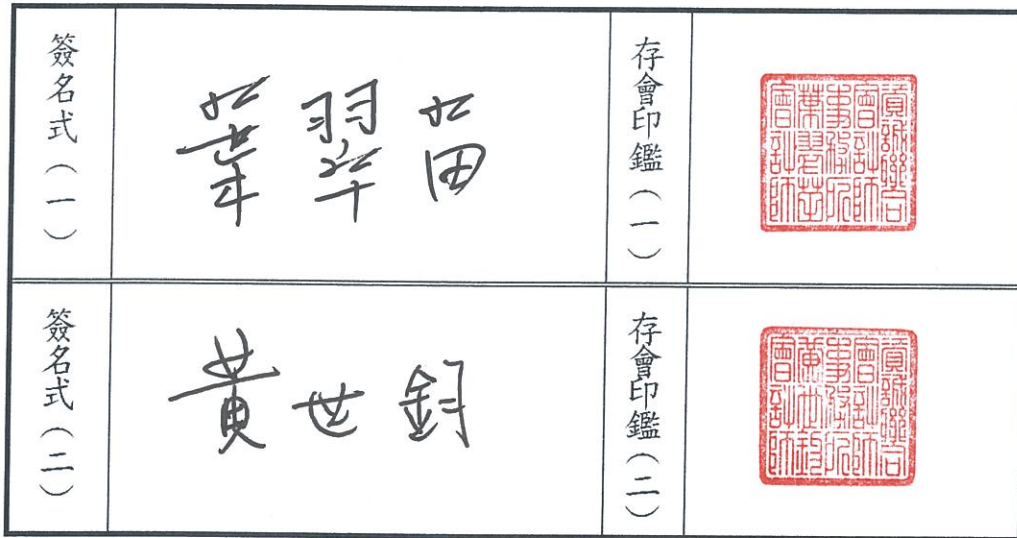 簽名式(一)
葉翠苗
存會印鑑(一)
資誠聯合
會計師
事務所
葉翠苗
會計師
簽名式(二)
黃世鈞
存會印鑑(二)
資誠聯合
會計師
事務所
黃世鈞
會計師